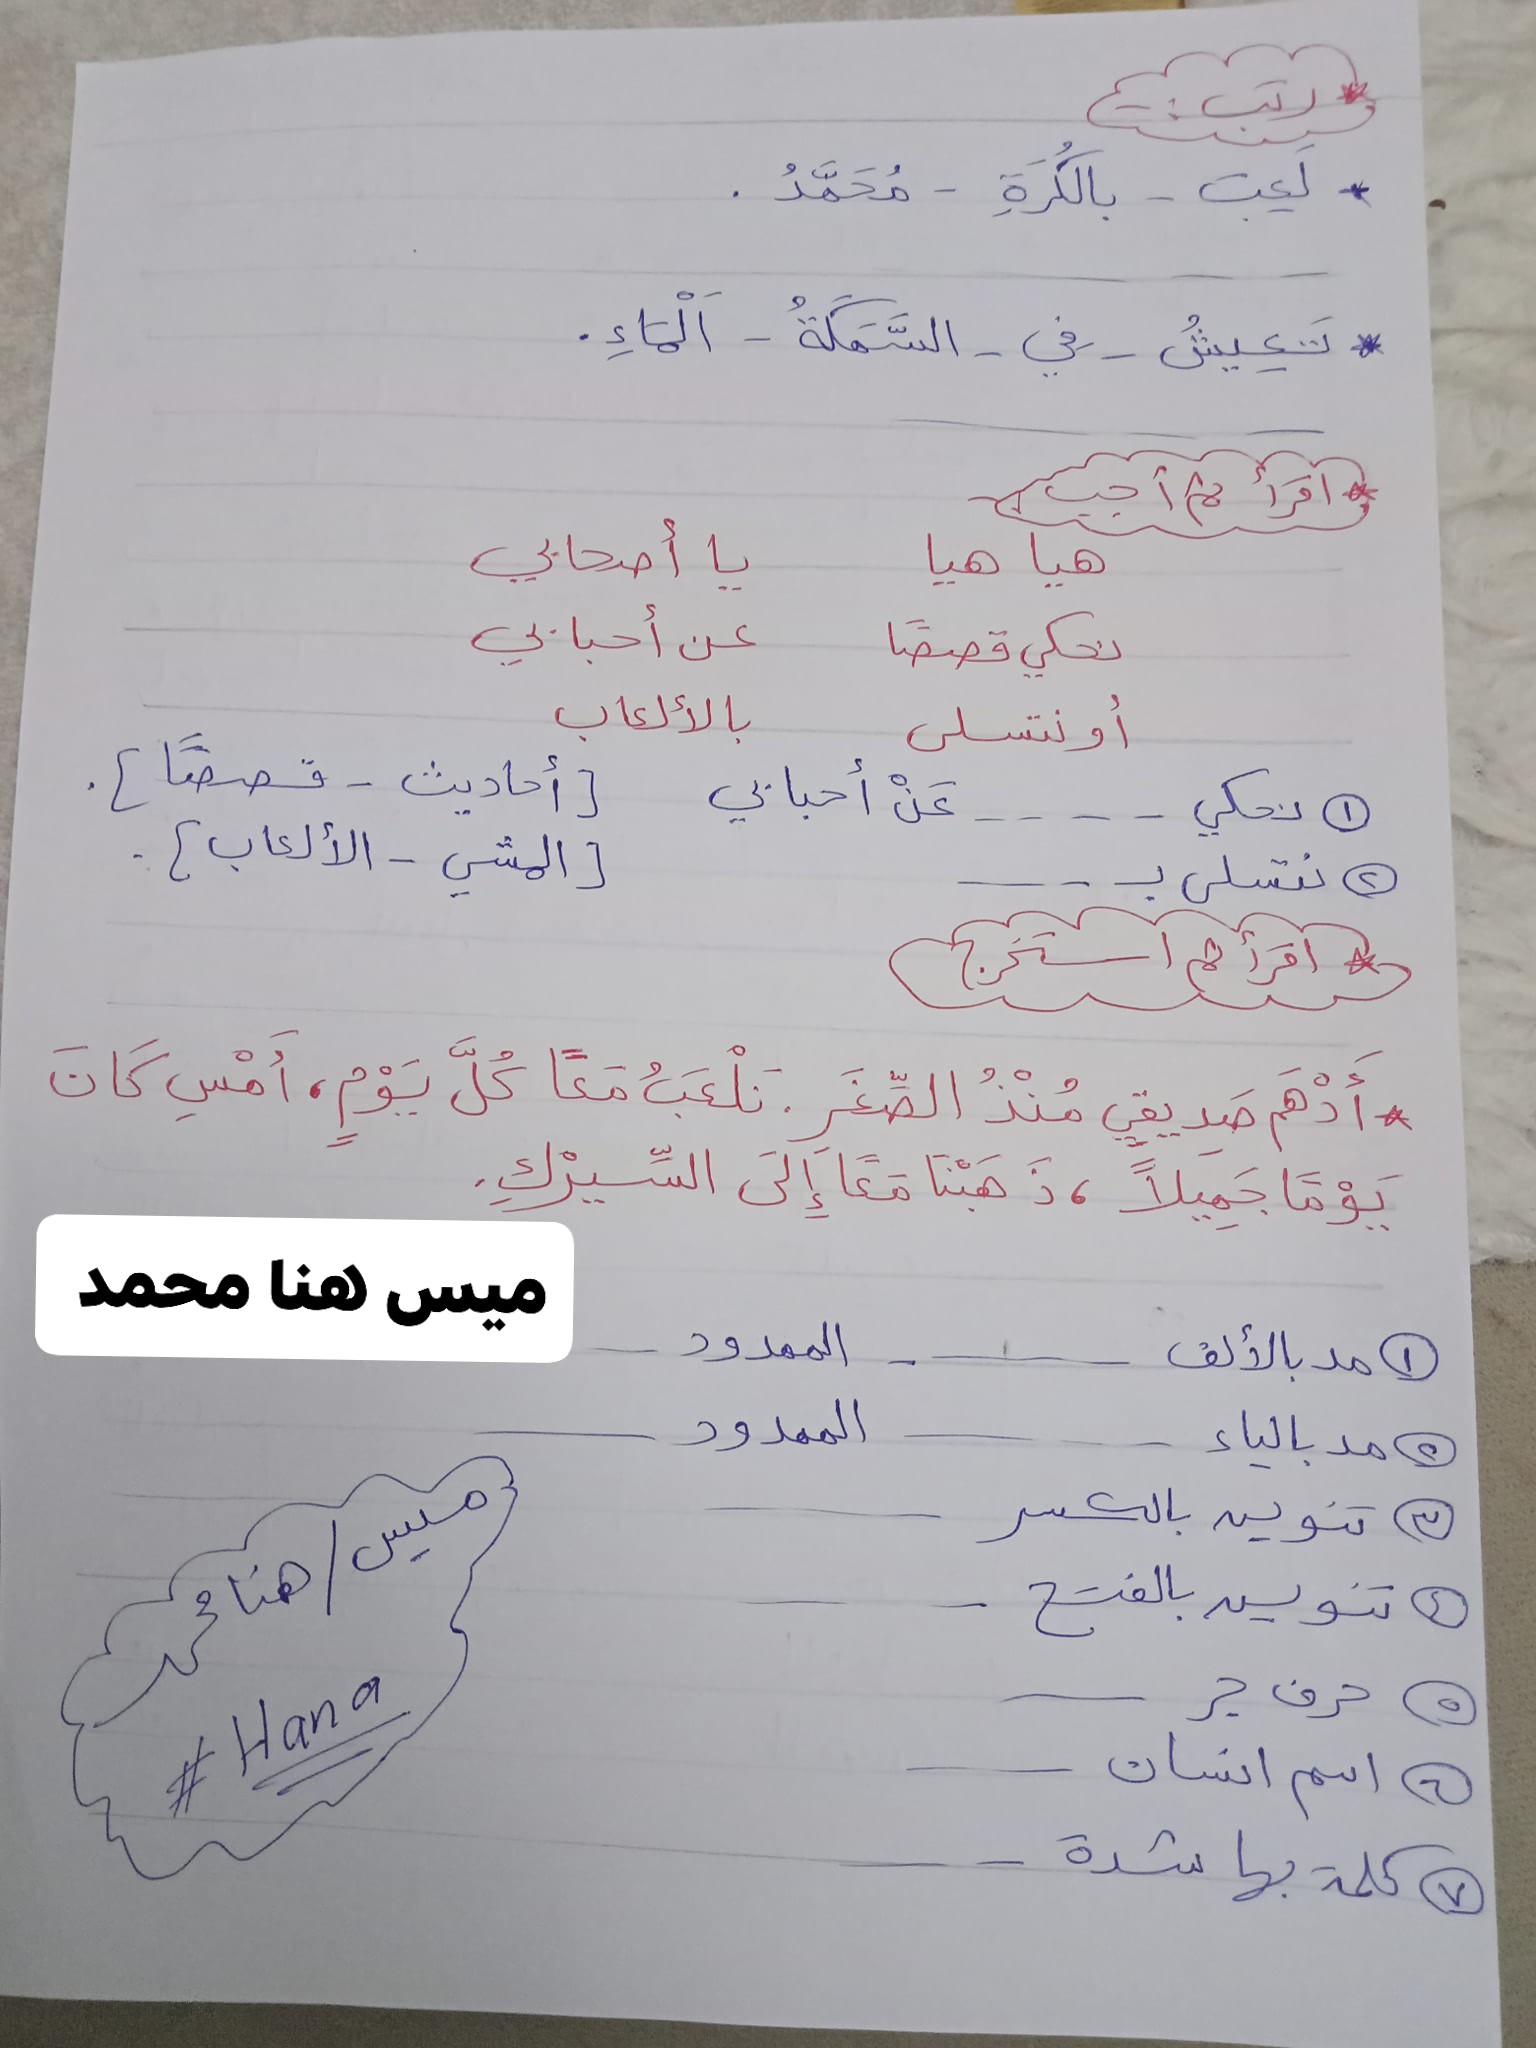 * رتب :-
* لَعِبَ - بالكُرَةِ - مُحَمَّدُ .
* تَعِيشُ - في - السَّمَكَةُ - اَلْمَاءِ .
* اقرأ ثم أجب
هيا هيا يا أصحابي
نحكي قصصًا عن أحبابي
أو نتسلى بالألعاب
① نحكي ---- عَنْ أحبابي [أحاديث - قصصًا].
② نتسلى بـ --- [المشي - الألعاب].
* اقرأ ثم استخرج
* أَدْهَم صَدِيقِي مُنْذُ الصِّغَرِ. نَلْعَبُ مَعًا كُلَّ يَوْمٍ، أَمْسِ كَانَ
يَوْمًا جَمِيلاً، ذَهَبْنَا مَعًا إِلَى السِّيرْكِ.
ميس هنا محمد
① مد بالألف ــــــ الممدود ــــــ
② مد بالياء ــــــ الممدود ــــــ
③ تنوين بالكسر ــــــ
④ تنوين بالفتح ــــــ
⑤ حرف جر ــــــ
⑥ اسم انسان ــــــ
⑦ كلمة بها شدة ــــــ
ميس / هنا محمد
# Hana